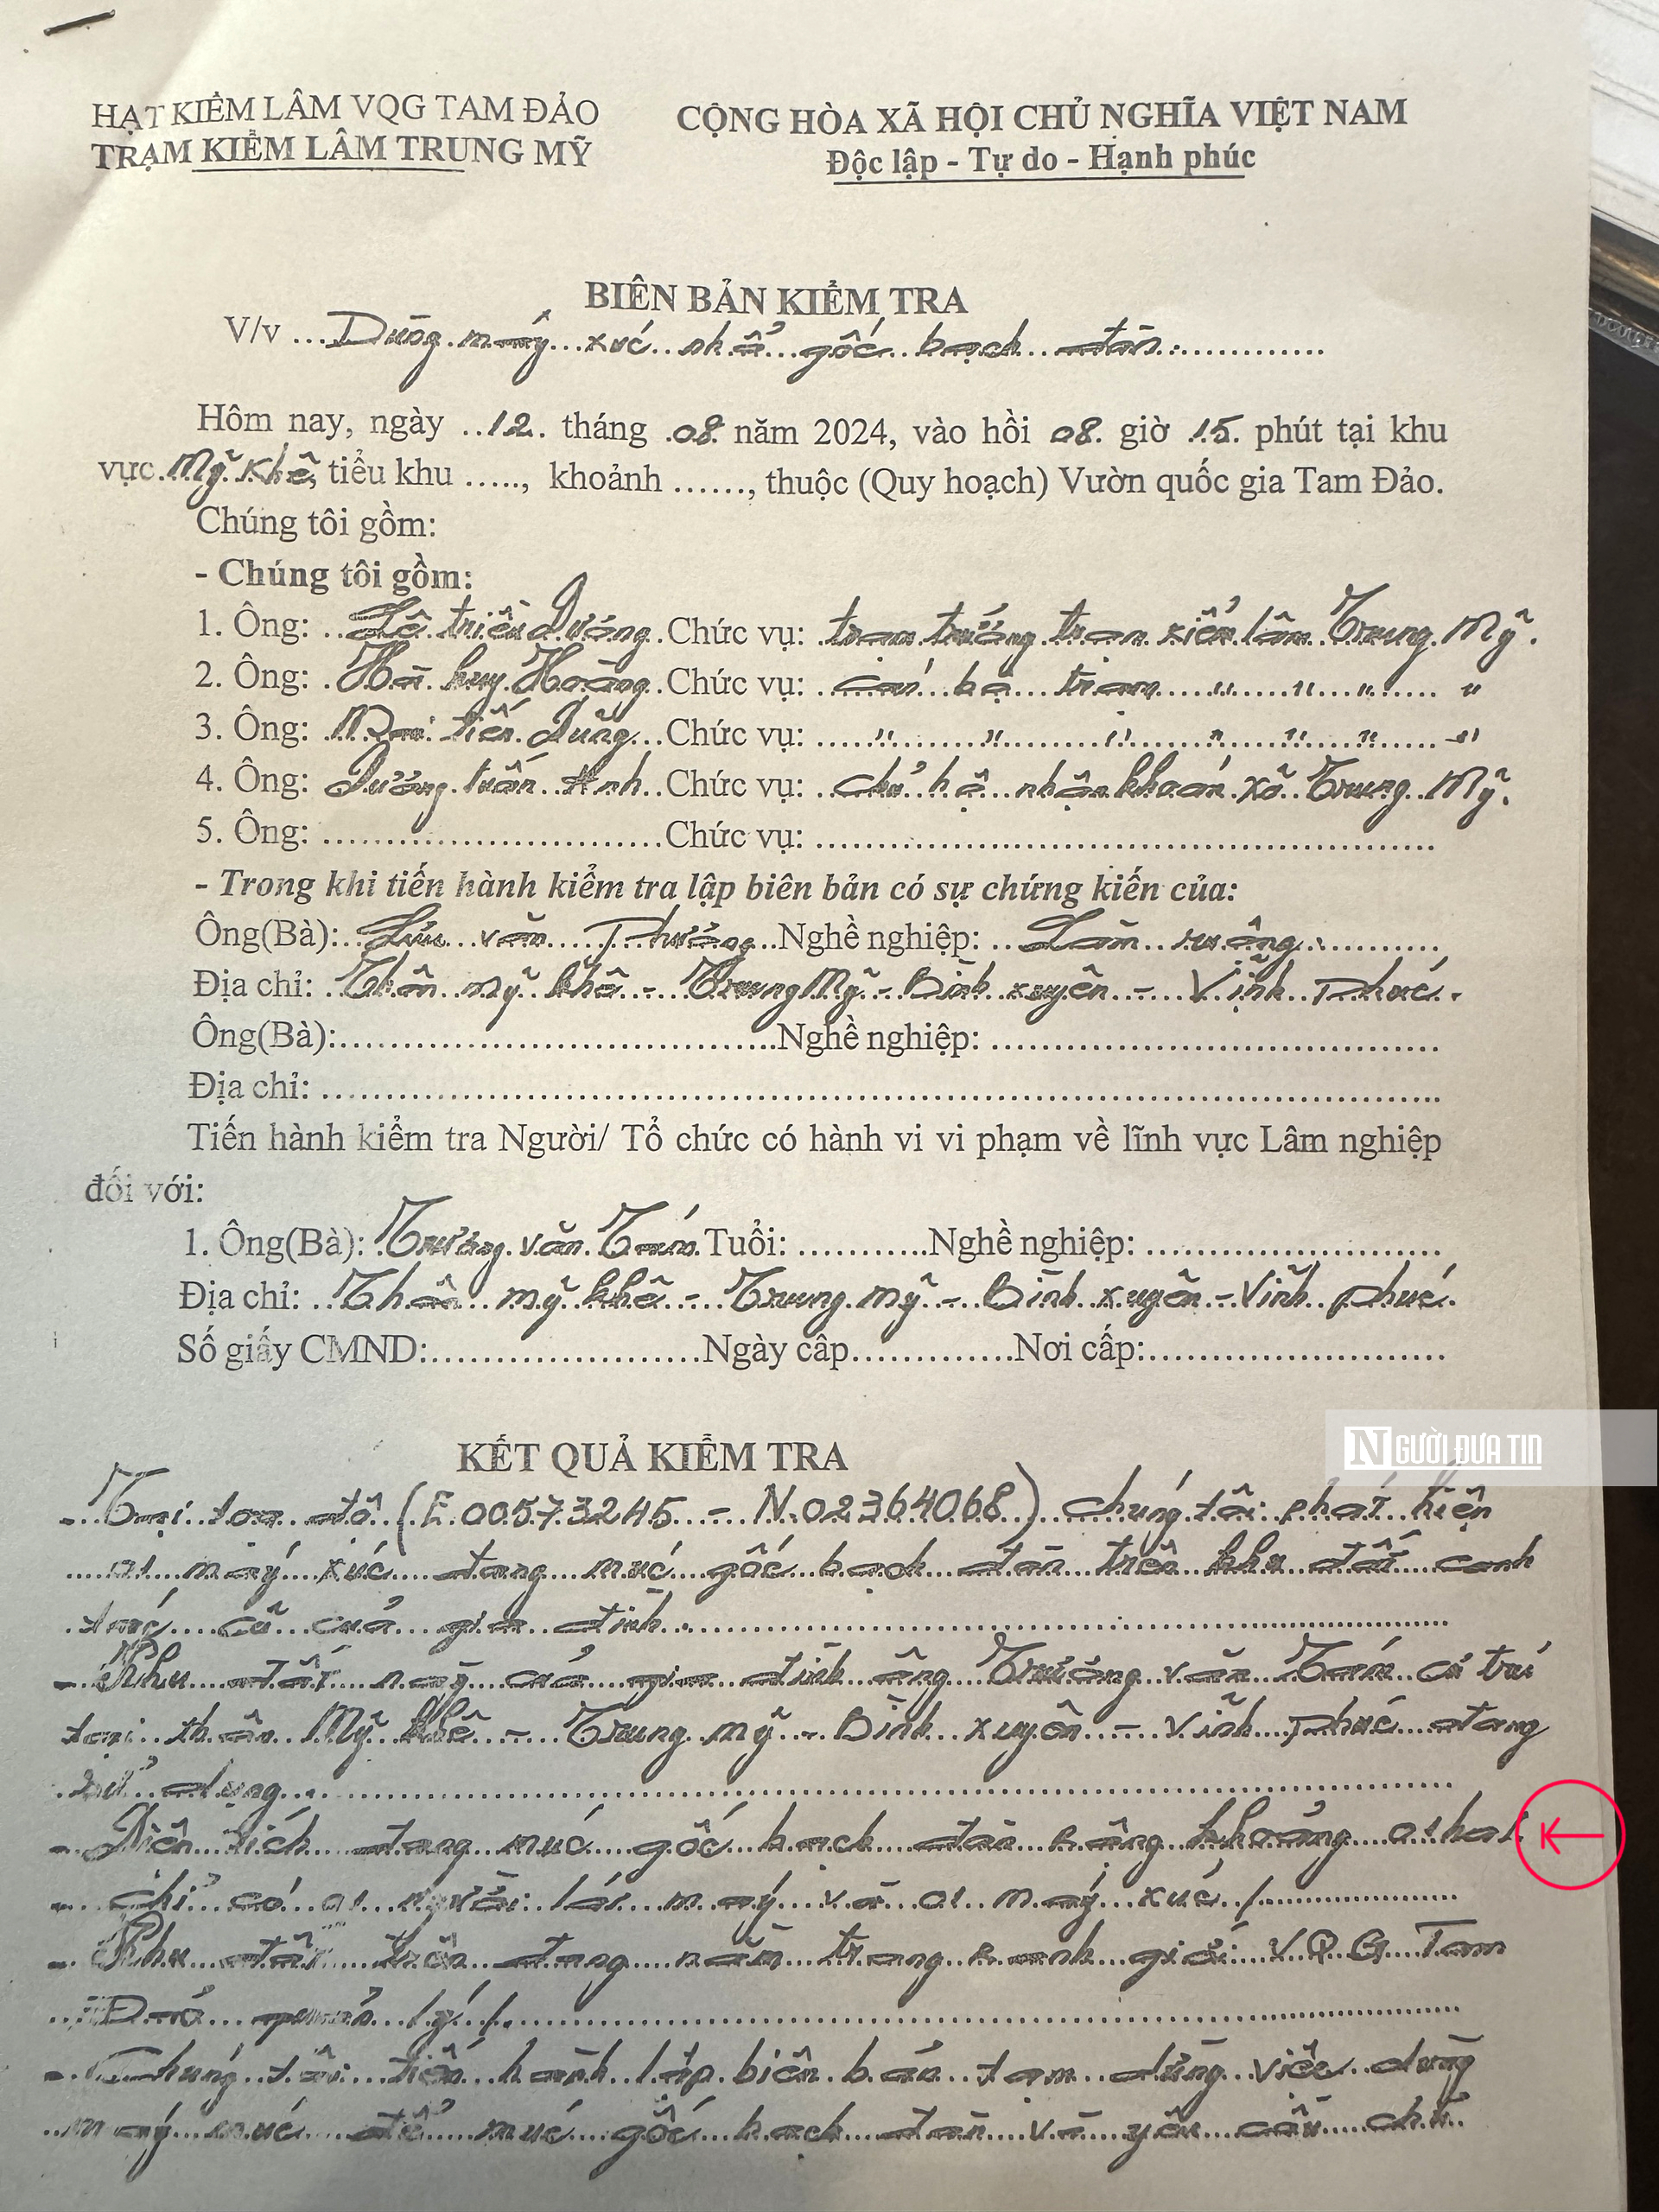 HẠT KIỂM LÂM VQG TAM ĐẢO
TRẠM KIỂM LÂM TRUNG MỸ
CỘNG HÒA XÃ HỘI CHỦ NGHĨA VIỆT NAM
Độc lập - Tự do - Hạnh phúc
BIÊN BẢN KIỂM TRA
V/v ...Dùng máy xúc nhổ gốc bạch đàn.............
Hôm nay, ngày ..12. tháng .08. năm 2024, vào hồi 08. giờ 15. phút tại khu
vực Mỹ Khê, tiểu khu ....., khoảnh ......, thuộc (Quy hoạch) Vườn quốc gia Tam Đảo.
Chúng tôi gồm:
- Chúng tôi gồm:
1. Ông: Lê triều Dương Chức vụ: trạm trưởng trạm kiểm lâm Trung Mỹ.
2. Ông: Hà huy Hoàng Chức vụ: cán bộ trạm " " " "
3. Ông: Mai tiến Dũng Chức vụ: " " " " " " "
4. Ông: Dương tuấn Anh Chức vụ: chủ hộ nhận khoán xã Trung Mỹ.
5. Ông: ............................ Chức vụ: ....................................................
- Trong khi tiến hành kiểm tra lập biên bản có sự chứng kiến của:
Ông(Bà): Lưu văn Thưởng Nghề nghiệp: Làm ruộng
Địa chỉ: Thôn mỹ khê - Trung Mỹ - Bình xuyên - Vĩnh Phúc.
Ông(Bà):.....................................Nghề nghiệp: ......................................
Địa chỉ: ..............................................................................................
Tiến hành kiểm tra Người/ Tổ chức có hành vi vi phạm về lĩnh vực Lâm nghiệp
đối với:
1. Ông(Bà): Trương văn Tám Tuổi: ...........Nghề nghiệp: .........................
Địa chỉ: Thôn mỹ khê - Trung mỹ - Bình xuyên - Vĩnh phúc.
Số giấy CMND:.......................Ngày cấp..............Nơi cấp:.........................
NGƯỜI ĐƯA TIN
KẾT QUẢ KIỂM TRA
- Tại tọa độ (E.00573245 - N.02364068) chúng tôi phát hiện
01 máy xúc đang múc gốc bạch đàn trên khu đất canh
tác cũ của gia đình.
- Khu đất này của gia đình ông Trương văn Tám có trú
tại thôn Mỹ khê - Trung mỹ - Bình xuyên - Vĩnh Phúc đang
sử dụng.
- Diện tích đang múc gốc bạch đàn rộng khoảng 01 ha.
- chỉ có 01 người lái máy và 01 máy xúc /.
- Khu đất trên đang nằm trong ranh giới V.Q.G Tam
Đảo quản lý /.
- Chúng tôi tiến hành lập biên bản tạm dừng việc dùng
máy múc để múc gốc bạch đàn và yêu cầu chủ